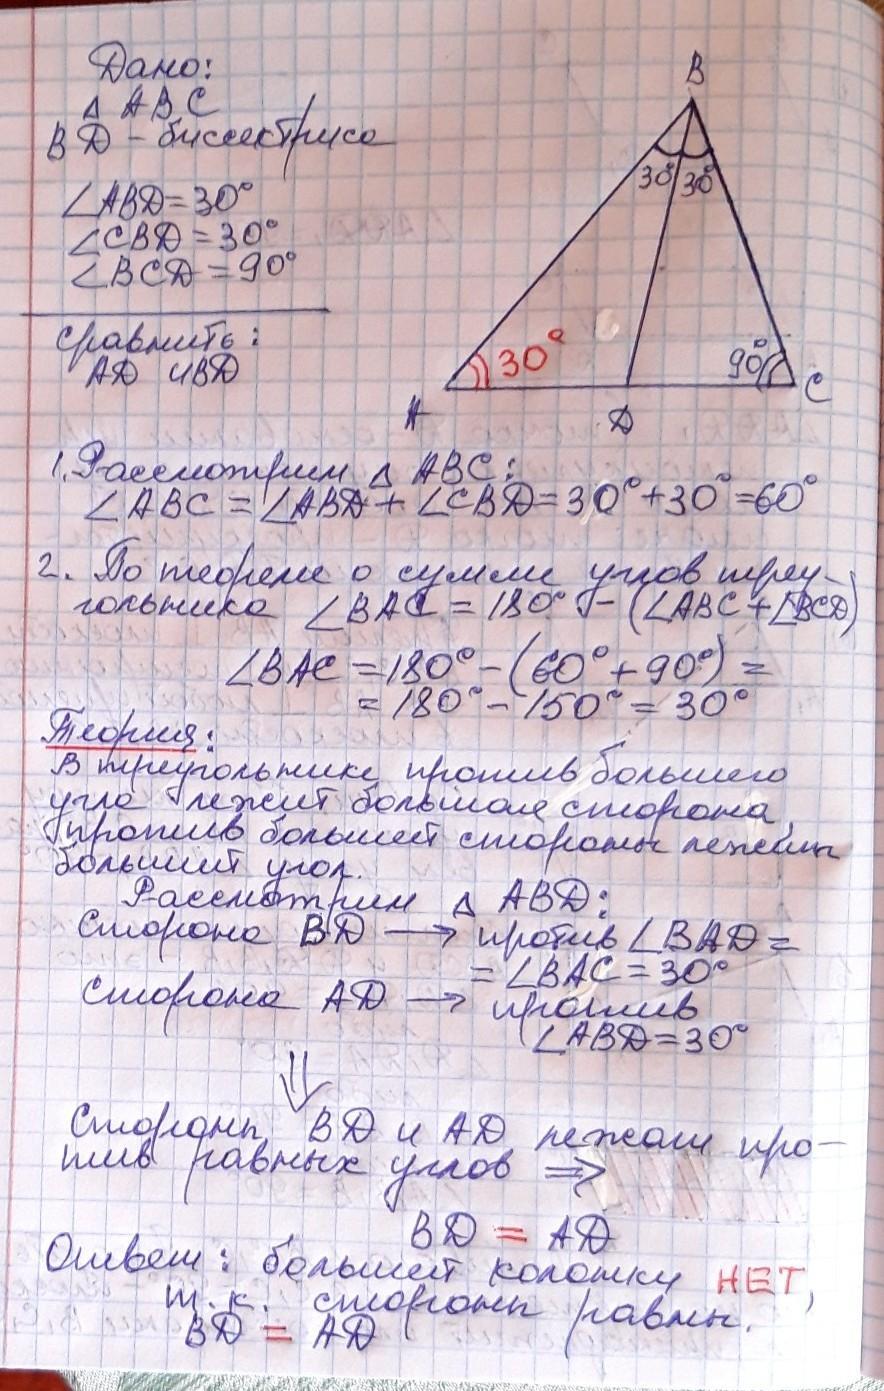 Дано:
△ ABC
BD - биссектриса
∠ABD = 30°
∠CBD = 30°
∠BCD = 90°
Сравнить:
AD и BD
B
30° 30°
30°
90°
A
D
C
1. Рассмотрим △ ABC:
∠ABC = ∠ABD + ∠CBD = 30° + 30° = 60°
2. По теореме о сумме углов треу-
гольника ∠BAC = 180° - (∠ABC + ∠BCD)
∠BAC = 180° - (60° + 90°) =
= 180° - 150° = 30°
Теория:
В треугольнике против большего
угла лежит большая сторона,
против большей стороны лежит
больший угол.
Рассмотрим △ ABD:
Сторона BD → против ∠BAD =
= ∠BAC = 30°
Сторона AD → против
∠ABD = 30°
⇓
Стороны BD и AD лежат про-
тив равных углов ⇒
BD = AD
Ответ: большей колонки НЕТ,
т.к. стороны равны.
BD = AD